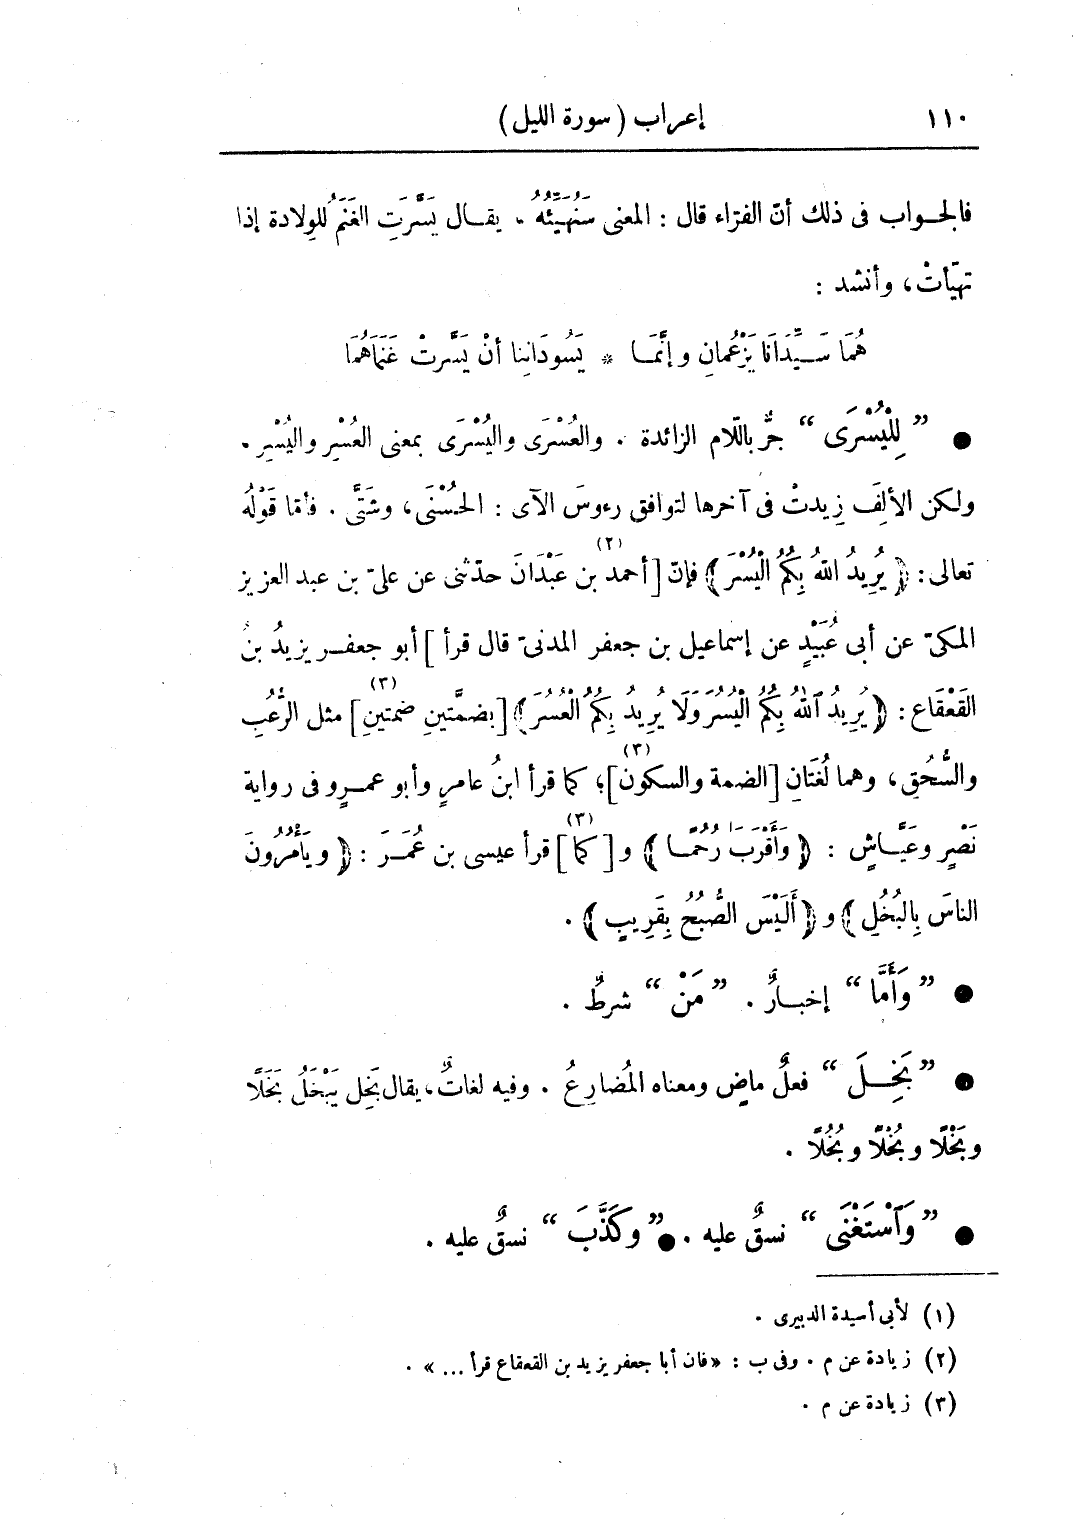 ١١٠ إعراب (سورة الليل)
فالجواب فى ذلك أنّ الفرّاء قال : المعنى سَنُهَيِّئُهُ . يقال يَسَّرَتِ الغَنَمُ للوِلادة إذا
تهيّأتْ، وأنشد :
هُمَا سَيِّدَانَا يَزْعُمانِ وإنَّمَا * يَسُودَانِنا أنْ يَسَّرتْ غَنَماهُمَا
● ” لِلْيُسْرَى “ جرٌّ باللّام الزائدة . والعُسْرَى واليُسْرَى بمعنى العُسْرِ واليُسْرِ .
ولكن الألِفَ زِيدتْ فى آخرها لتوافق رءوسَ الآى : الحُسْنَى، وشَتَّى . فأمّا قَوْلُهُ
تعالى : ﴿ يُرِيدُ اللهُ بِكُمُ الْيُسْرَ ﴾ فإنّ [أحمد بن عَبْدَانَ (٢) حدّثنى عن علىّ بن عبد العزيز
المكىّ عن أبى عُبَيْدٍ عن إسماعيل بن جعفر المدنىّ قال قرأ ] أبو جعفر يزيدُ بنُ
القَعْقَاع : ﴿ يُرِيدُ ٱللهُ بِكُمُ الْيُسُرَ وَلَا يُرِيدُ بِكُمُ الْعُسُرَ ﴾ [بضمَّتينِ ضمّتينِ] (٣) مثل الرُّعُبِ
والسُّحُقِ، وهما لُغَتَانِ [الضمة والسكون] (٣)؛ كما قرأ ابنُ عامرٍ وأبو عمرٍو فى رواية
نَصْرٍ وعَيَّاشٍ : ﴿ وَأَقْرَبَ رُحُمًا ﴾ و[كما] (٣) قرأ عيسى بن عُمَرَ : ﴿ ويَأْمُرُونَ
الناسَ بِالبُخُلِ ﴾ و ﴿ أَلَيْسَ الصُّبُحُ بِقَرِيبٍ ﴾ .
● ” وَأَمَّا “ إخبارٌ . ” مَنْ “ شرطٌ .
● ” بَخِلَ “ فعلٌ ماضٍ ومعناه المُضارِعُ . وفيه لغاتٌ، يقال بَخِلَ يَبْخَلُ بَخَلًا
وبَخْلًا وبُخْلًا وبُخُلًا .
● ” وَٱسْتَغْنَى “ نسقٌ عليه . ● ” وكَذَّبَ “ نسقٌ عليه .
(١) لأبى أسيدة الدبيرى .
(٢) زيادة عن م . وفى ب : «فان أبا جعفر يزيد بن القعقاع قرأ ... » .
(٣) زيادة عن م .